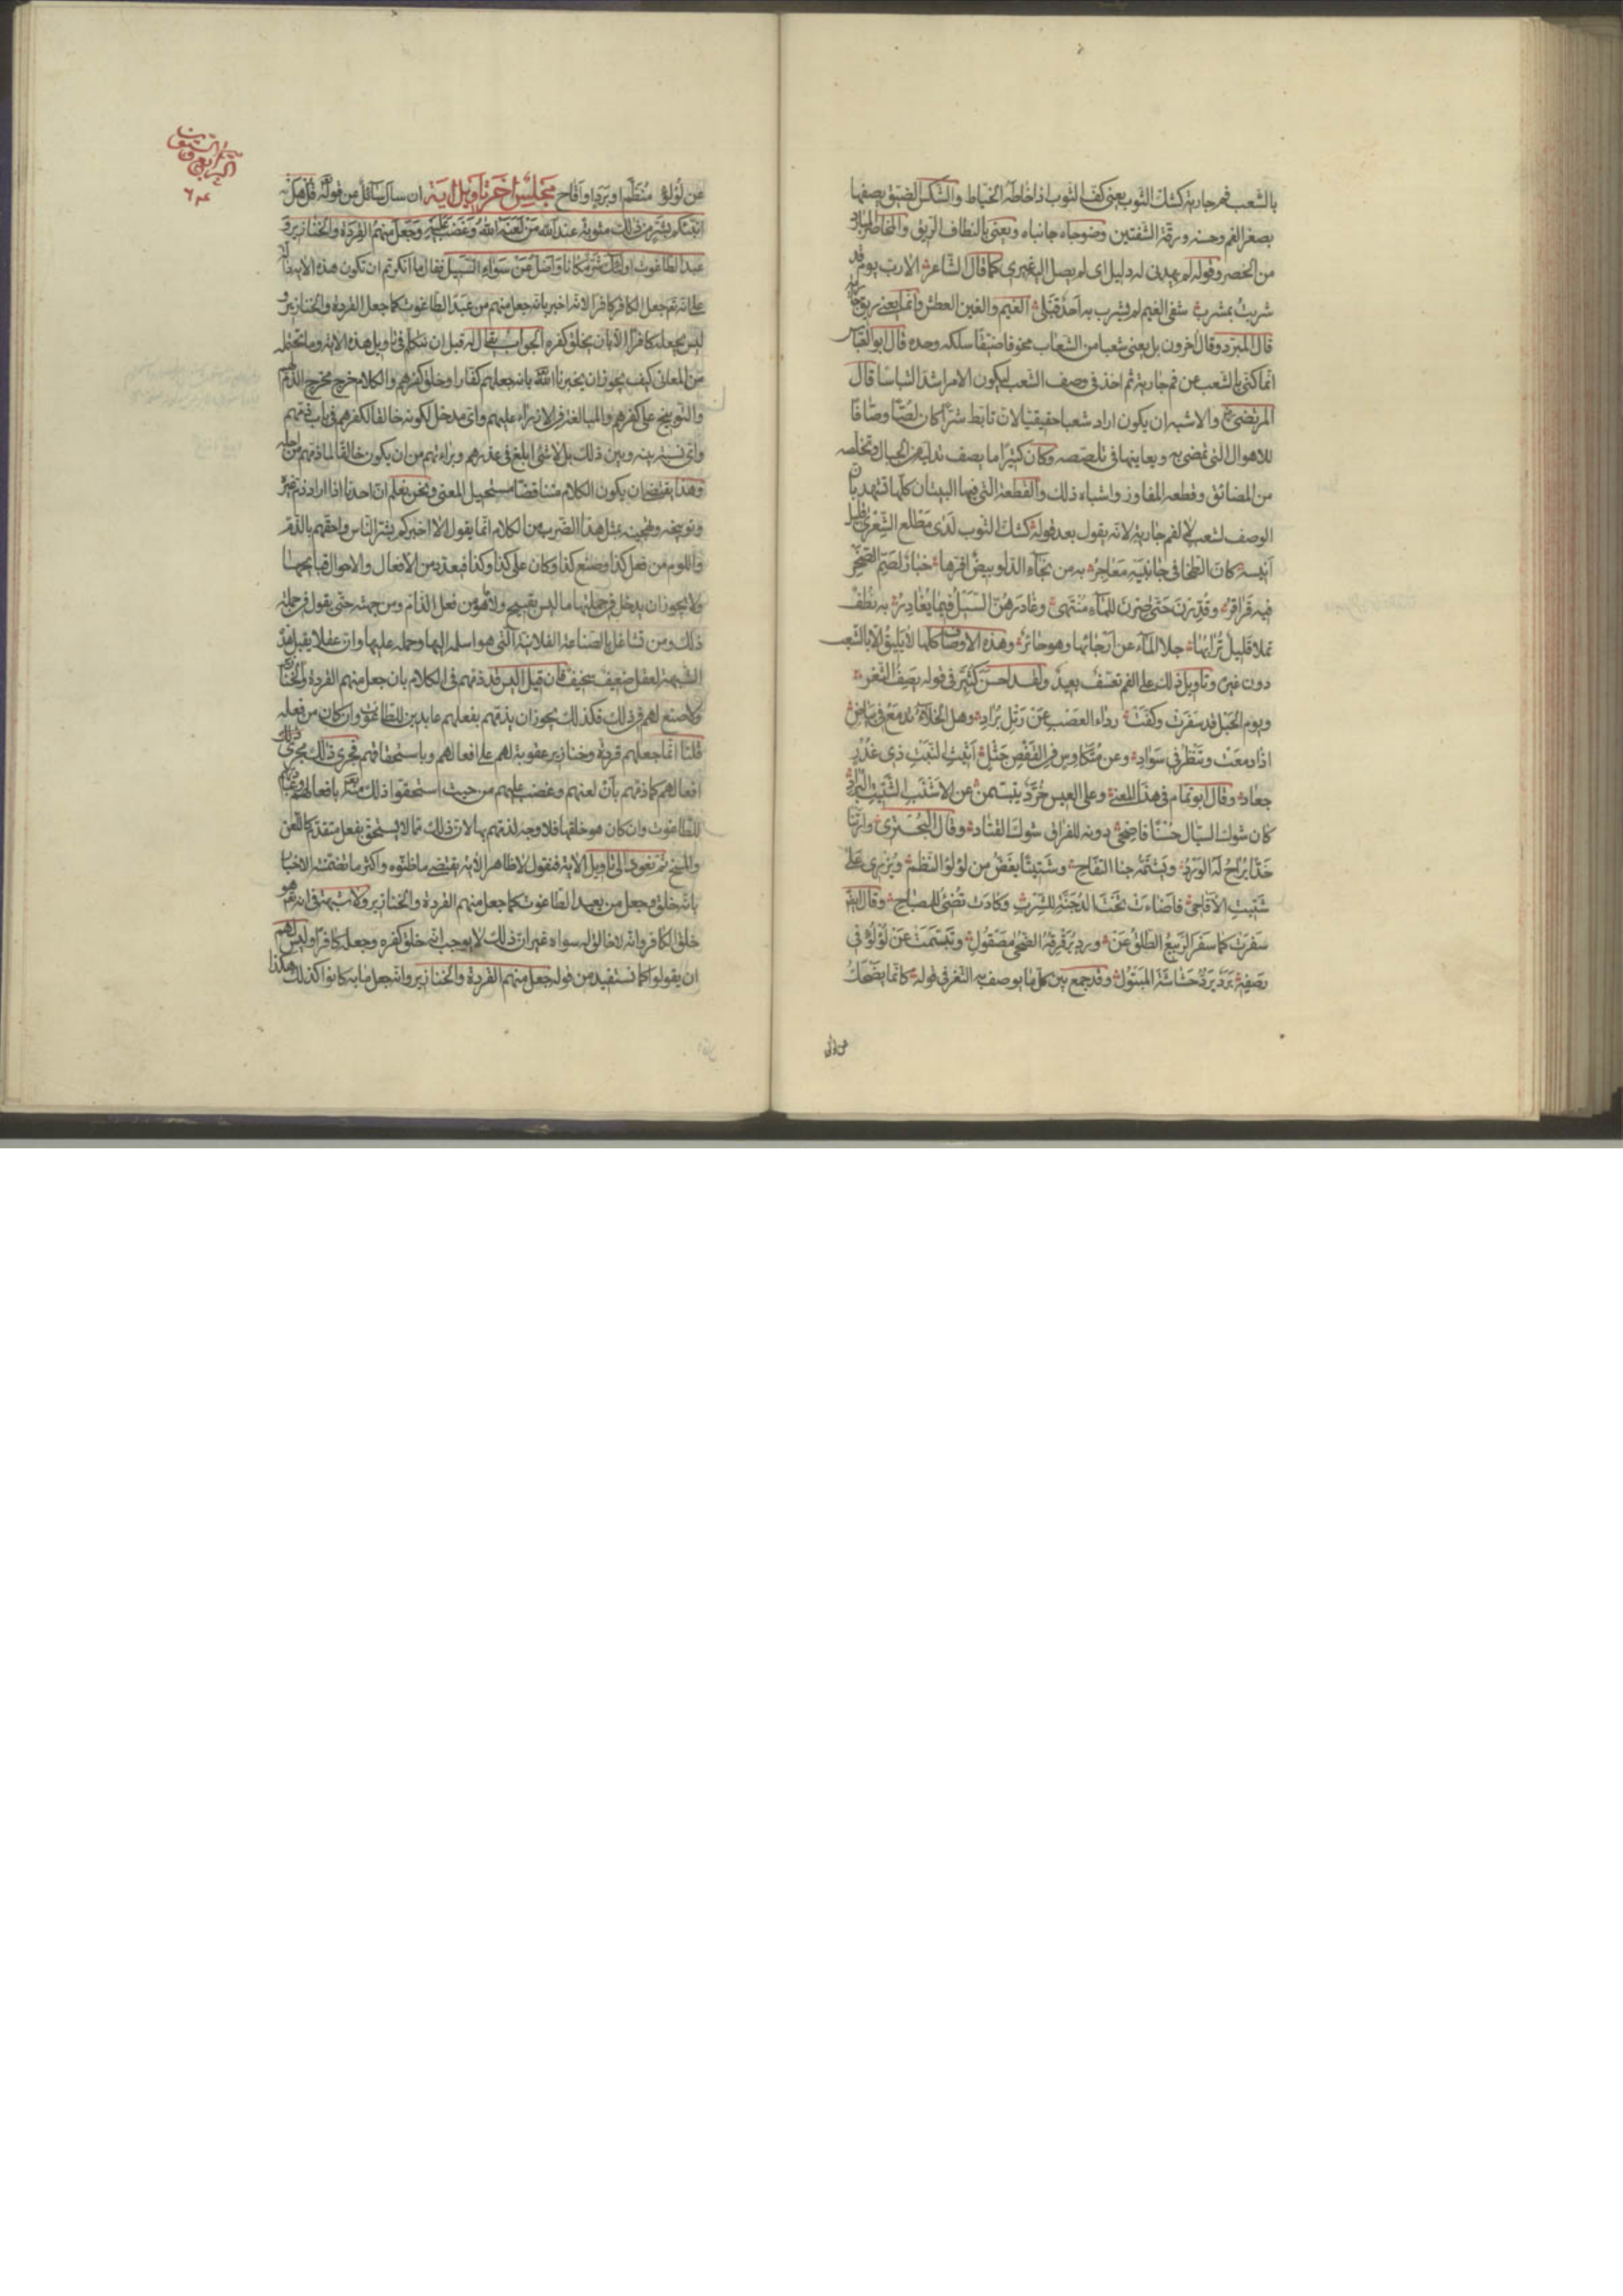 بالشعب فم جارية كشك الثوب يعني كف الثوب اذا خاطه الخياط والشكس الضيق يصفها
بصغر الفم وحسنه ورقة الشفتين وضوجاه جانباه ويعني بالنطاف الريق والمخاصر البارد
من الخصر وقوله لم يهدني له دليل اي لم يصل اليه غيري كما قال الشاعر الا رب يوم قد
شربت بمشرب شفي الغيم لم يشرب به احد قبلي الغيم والغين العطش وانما يعني ريق جارية
قال المبرد وقال اخرون بل يعني شعبا من الشعاب مخوفا ضيقا سلكه وحده قال ابو العباس
انما كني بالشعب عن فم جارية ثم اخذ في وصف الشعب ليكون الامر اشد التباسا قال
المرتضى والاشبه ان يكون اراد شعبا حقيقيا لان تابط شرا كان لصا وصافا
للاهوال التي تمضي به ويعاينها في تلصصه وكان كثيرا ما يصف تدليه من الجبال وتخلصه
من المضائق وقطعه المفاوز واشباه ذلك والقطعة التي فيها البيتان كلها تشهد بان
الوصف لشعب لا لفم جارية لانه يقول بعد قوله كشك الثوب لدى مطلع الشعرى قليل
انيسه كان الطخا في جانبيه معاجر به من نجاء الدلو بيض اقرها خبار لصم الصخر
فيه قراقر وقررن حتى صرن للماء منتهى وغادرهن السيل فيما يغادر به نطف
تملا قليل ترابها جلا الماء عن ارجائها وهو حائر وهذه الاوصاف كلها لا يليق الا بالشعب
دون غيره وتاويل ذلك على الفم تعسف بعيد ولقد احسن كثير في قوله يصف الثغر
ويوم الخيل قد سفرت وكفت رداء العصب عن رتل براد وهل الخلاء تدمع في بياض
اذا دمعت وتنظر في سواد وعن متكاوس في العقص جثل اثيث النبت ذي غدر
جعاد وقال ابو تمام في هذا المعنى وعلى العيس خرد يتبسمن عن الاشنب الشتيت البراد
كان شوك السيال حسنا فاضحى دونه للفراق شوك القتاد وقال البحتري وارتنا
خدا يراح له الورد ويشتمه جنا التفاح وشتيتا يغض من لؤلؤ النظم ويزري على
شتيت الاقاحي فاضاءت تحت الدجنة للشرب وكادت تضيء للمصباح وقال ايضا
سفرت كما سفر الربيع الطلق عن ورد يرقرقه الضحى مصقول وتبسمت عن لؤلؤ في
رصفه برد يرد حشاشة المتبول وقد جمع بين كل ما يوصف به الثغر في قوله كانما يضحك
عن لؤلؤ
عن لؤلؤ منظم او برد او اقاح مجلس اخر تاويل اية ان سال سائل عن قوله قل هل
انبئكم بشر من ذلك مثوبة عند الله من لعنه الله وغضب عليه وجعل منهم القردة والخنازير و
عبد الطاغوت اولئك شر مكانا واضل عن سواء السبيل فقال ما انكرتم ان تكون هذه الاية دالة
على انه تعالى جعل الكافر كافرا لانه اخبر بانه جعل منهم من عبد الطاغوت كما جعل القردة والخنازير و
ليس يجعله كافرا الا بان يخلق كفره الجواب يقال له قبل ان نتكلم في تاويل هذه الاية وما تحتمله
من المعاني كيف يجوز ان يخبرنا الله بانه جعلهم كفارا وخلق كفرهم والكلام خرج مخرج الذم لهم
والتوبيخ على كفرهم والمبالغة في الازراء عليهم واي مدخل لكونه خالقا لكفرهم في باب ذمهم
واي نسبة بينه وبين ذلك بل لا شئ ابلغ في عذرهم وبراءتهم من ان يكون خالقا لما ذمهم من اجله
وهذا يقتضي ان يكون الكلام متناقضا مستحيل المعنى ونحن نعلم ان احدنا اذا اراد ذم غيره
وتوبيخه وتهجينه بمثل هذا الضرب من الكلام انما يقول الا اخبركم بشر الناس واحقهم بالذم
واللوم من فعل كذا وصنع كذا وكان على كذا وكذا فيعدد من الافعال والاحوال قبائحها
ولا يجوز ان يدخل في جملتها ما ليس بقبيح ولا هو من فعل الذام ومن جهته حتى يقول في جملة
ذلك ومن تشاغل بالصناعة الفلانية التي هو اسلمه اليها وحمله عليها وان عقلا يقبل هذه
الشبهة لعقل ضعيف سخيف فان قيل اليس قد ذمهم في الكلام بان جعل منهم القردة والخنازير
ولا صنع لهم في ذلك فكذلك يجوز ان يذمهم بفعلهم عابدين للطاغوت وان كان من فعله
قلنا انما جعلهم قردة وخنازير عقوبة لهم على افعالهم وباستحقاقهم فجرى ذلك مجرى
افعالهم كما ذمهم بان لعنهم وغضب عليهم من حيث استحقوا ذلك منه بافعالهم وعبادتهم
للطاغوت وان كان هو خلقها فلا وجه لذمهم بها لان ذلك مما لا يستحق بفعل متقدم كاللعن
والمسخ ثم نعود الى تاويل الاية فنقول لا ظاهر للاية يقتضي ما ظنوه واكثر ما تضمنته الاخبار
بانه خلق وجعل من يعبد الطاغوت كما جعل منهم القردة والخنازير ولا شبهة في انه تعالى هو
خلق الكافر وانه لا خالق له سواه غير ان ذلك لا يوجب انه خلق كفره وجعله كافرا وليس لهم
ان يقولوا كما نستفيد من قوله جعل منهم القردة والخنازير وانه جعل ما به كانوا كذلك هكذا